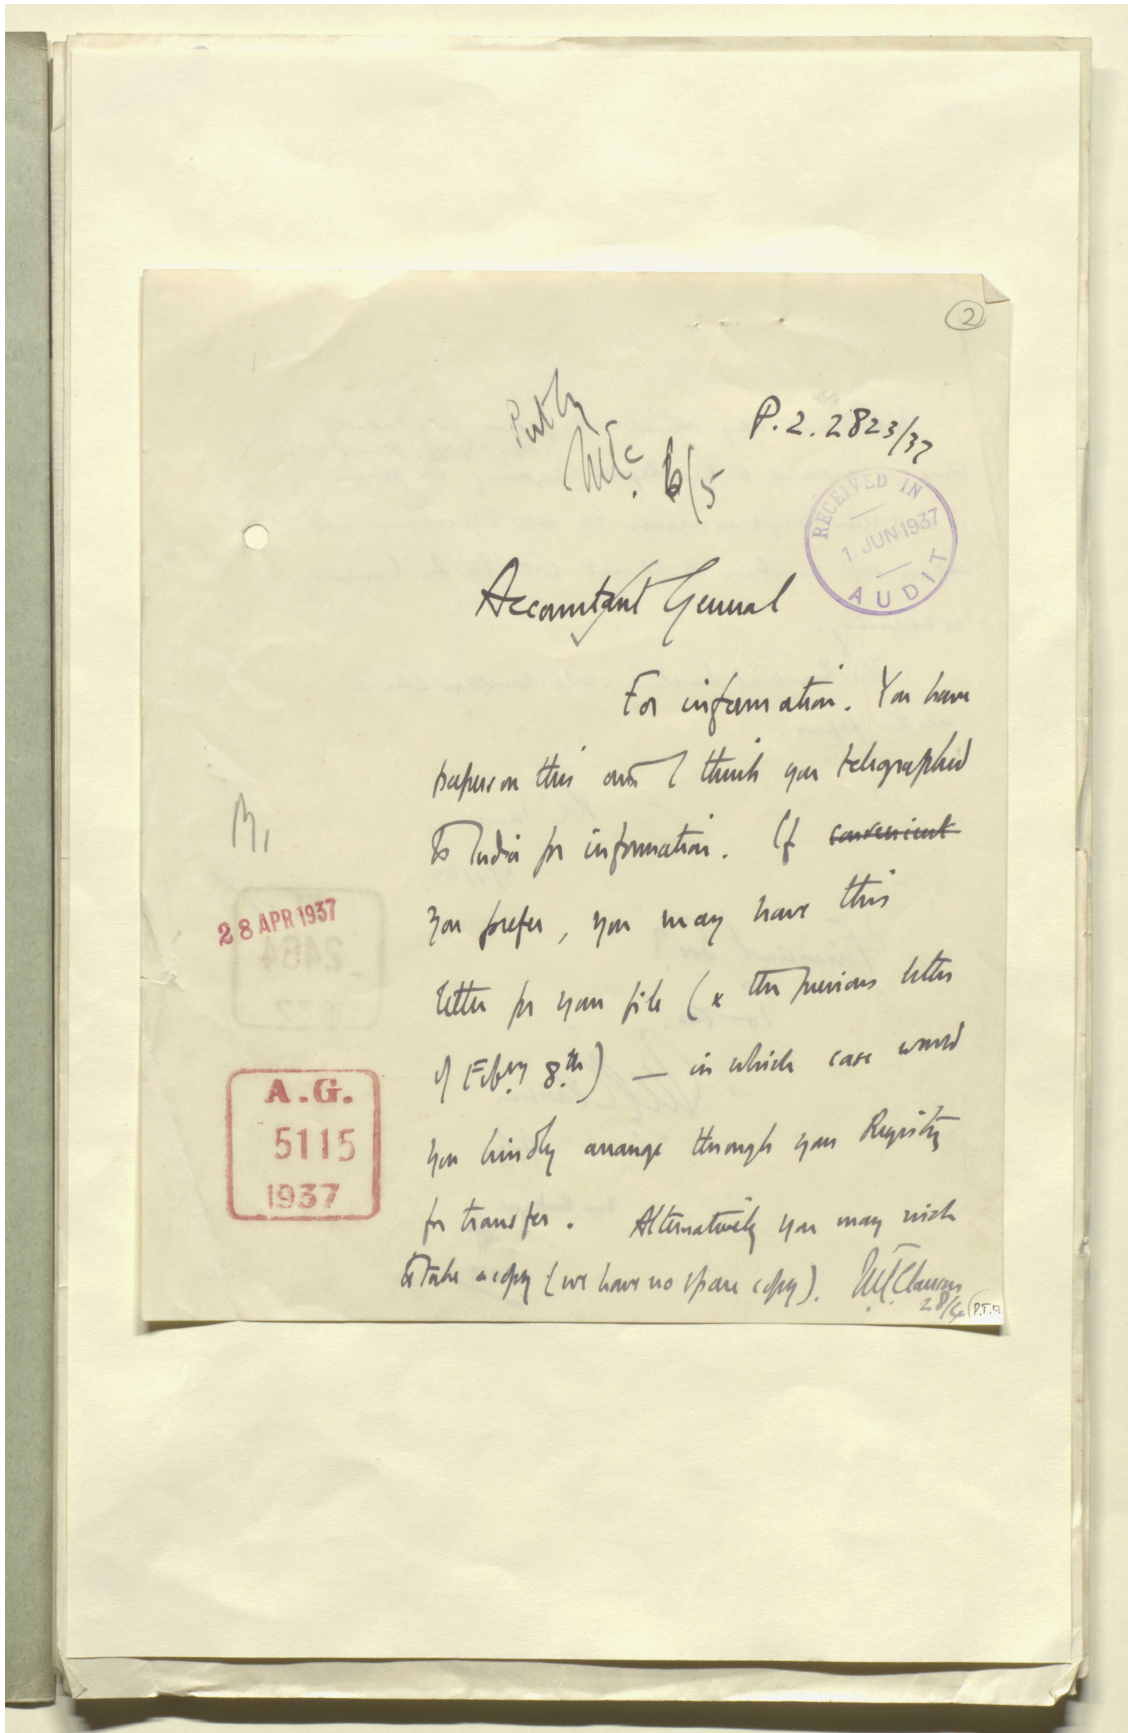 2
Put by
P.2. 2823/37
6/5
RECEIVED IN
1 JUN 1937
AUDIT
Accountant General
For information. You have
papers on this and I think you telegraphed
to India for information. If convenient
you prefer, you may have this
letter for your file (& the previous letter
of Feb.ry 8.th) — in which case would
you kindly arrange through your Registry
for transfer. Alternatively you may wish
to take a copy (we have no spare copy). M.J. Clauson
28/4
P.T.O
28 APR 1937
2464
A.G.
5115
1937